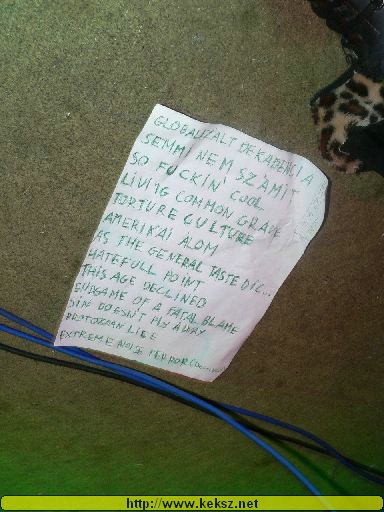 GLOBALIZÁLT DEKADENCIA
SEMMI NEM SZÁMÍT
SO FUCKIN COOL
LIVING COMMON GRAVE
TORTURE CULTURE
AMERIKAI ÁLOM
AS THE GENERAL TASTE DIC...
HATEFULL POINT
THIS AGE DECLINED
ENDGAME OF A FATAL BLAME
SIN DOESN'T FLY AWAY
PROTOZOAN LIFE
EXTREME NOISE TERROR
http://www.keksz.net